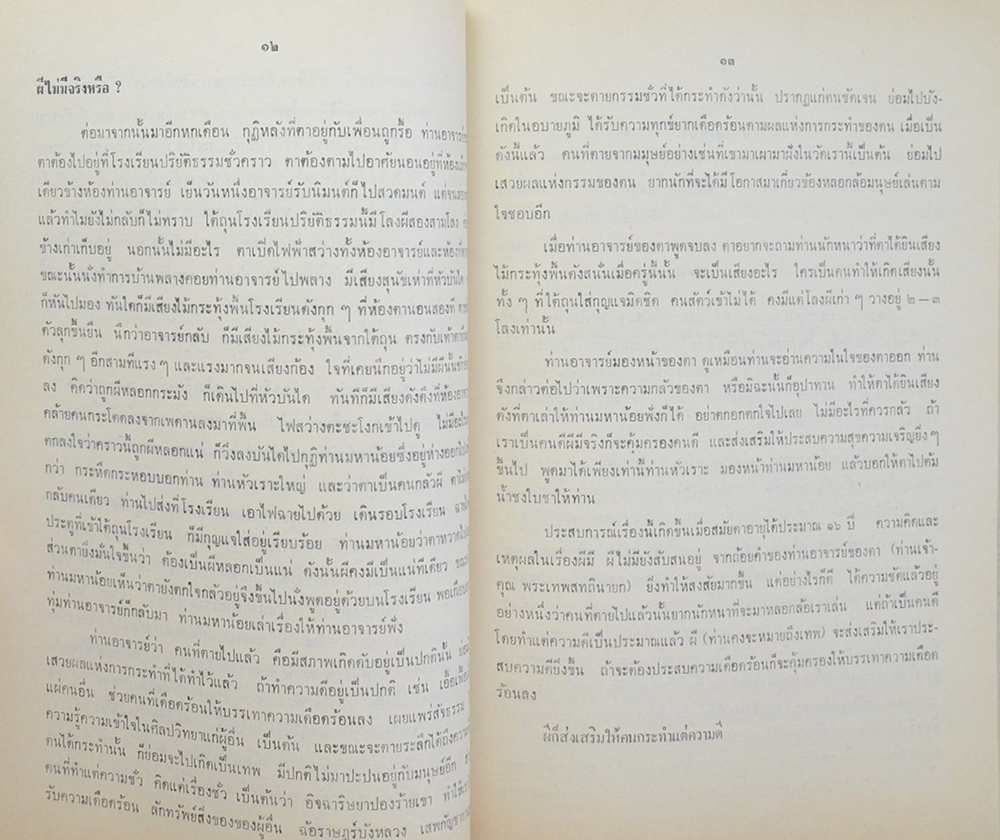 ๑๒
ผีไม่มีจริงหรือ ?
ต่อมาจากนั้นมาอีกหกเดือน กุฏิหลังที่ตาอยู่กับเพื่อนถูกรื้อ ท่านอาจารย์
ตาต้องไปอยู่ที่โรงเรียนปริยัติธรรมชั่วคราว ตาต้องตามไปอาศัยนอนอยู่ที่ห้อง
เดียวข้างห้องท่านอาจารย์ เย็นวันหนึ่งอาจารย์รับนิมนต์ก็ไปสวดมนต์ แต่จน
แล้วทำไมยังไม่กลับก็ไม่ทราบ ใต้ถุนโรงเรียนปริยัติธรรมนี้มีโลงผีสองสามโลง
ข้างเก่าเก็บอยู่ นอกนั้นไม่มีอะไร ตาเปิดไฟฟ้าสว่างทั้งห้องอาจารย์และห้อง
ขณะนั้นนั่งทำการบ้านพลางคอยท่านอาจารย์ไปพลาง มีเสียงสุนัขเห่าที่หัวบันได
ก็หันไปมอง ทันใดก็มีเสียงไม้กระทุ้งพื้นโรงเรียนดังกุก ๆ ที่ห้องตานอนสองที
ตัวลุกขึ้นยืน นึกว่าอาจารย์กลับ ก็มีเสียงไม้กระทุ้งพื้นจากใต้ถุน ตรงกับเท้า
ดังกุก ๆ อีกสามทีแรง ๆ และแรงมากจนเสียงก้อง ใจที่เคยนึกอยู่ว่าไม่มีผีนั้น
ลง คิดว่าถูกผีหลอกกระมัง ก็เดินไปที่หัวบันได ทันทีก็มีเสียงดังตึงที่ห้อง
คล้ายคนกระโดดลงจากเพดานลงมาที่พื้น ไฟสว่างตะชะโงกเข้าไปดู ไม่มี
ตกลงใจว่าคราวนี้ถูกผีหลอกแน่ ก็วิ่งลงบันไดไปกุฏิท่านมหาน้อยซึ่งอยู่ห่างออกไป
กว่า กระหืดกระหอบบอกท่าน ท่านหัวเราะใหญ่ และว่าตาเป็นคนกลัวผี
กลับคนเดียว ท่านไปส่งที่โรงเรียน เอาไฟฉายไปด้วย เดินรอบโรงเรียน
ประตูที่เข้าใต้ถุนโรงเรียน ก็มีกุญแจใส่อยู่เรียบร้อย ท่านมหาน้อยว่าตาหวาดไป
ส่วนตายิ่งมั่นใจขึ้นว่า ต้องเป็นผีหลอกเป็นแน่ ดังนั้นผีคงมีเป็นแน่ทีเดียว
ท่านมหาน้อยเห็นว่าตายังตกใจกลัวอยู่จึงขึ้นไปนั่งพูดอยู่ด้วยบนโรงเรียน
ทุ่มท่านอาจารย์ก็กลับมา ท่านมหาน้อยเล่าเรื่องให้ท่านอาจารย์ฟัง
ท่านอาจารย์ว่า คนที่ตายไปแล้ว คือมีสภาพเกิดดับอยู่เป็นปกตินั้น
เสวยผลแห่งการกระทำที่ได้ทำไว้แล้ว ถ้าทำความดีอยู่เป็นปกติ เช่น เอื้อเฟื้อ
แผ่คนอื่น ช่วยคนที่เดือดร้อนให้บรรเทาความเดือดร้อนลง เผยแพร่สัจธรรม
ความรู้ความเข้าใจในศิลปวิทยาแก่ผู้อื่น เป็นต้น และขณะจะตายระลึกได้ถึง
ตนได้กระทำนั้น ก็ย่อมจะไปเกิดเป็นเทพ มีปกติไม่มาปะปนอยู่กับมนุษย์อีก
คนที่ทำแต่ความชั่ว คิดแต่เรื่องชั่ว เป็นต้นว่า อิจฉาริษยาปองร้ายเขา
รับความเดือดร้อน ลักทรัพย์สิ่งของของผู้อื่น ฉ้อราษฎร์บังหลวง
๑๓
เป็นต้น ขณะจะตายกรรมชั่วที่ได้กระทำดังว่านั้น ปรากฏแก่ตนชัดเจน ย่อมไปบัง-
เกิดในอบายภูมิ ได้รับความทุกข์ยากเดือดร้อนตามผลแห่งการกระทำของตน เมื่อเป็น
ดังนี้แล้ว คนที่ตายจากมนุษย์อย่างเช่นที่เขามาเผามาฝังในวัดเรานี้เป็นต้น ย่อมไป
เสวยผลแห่งกรรมของตน ยากนักที่จะได้มีโอกาสมาเกี่ยวข้องหลอกล้อมนุษย์เล่นตาม
ใจชอบอีก
เมื่อท่านอาจารย์ของตาพูดจบลง ตาอยากจะถามท่านนักหนาว่าที่ตาได้ยินเสียง
ไม้กระทุ้งพื้นดังสนั่นเมื่อครู่นี้นั้น จะเป็นเสียงอะไร ใครเป็นคนทำให้เกิดเสียงนั้น
ทั้ง ๆ ที่ใต้ถุนใส่กุญแจมิดชิด คนสัตว์เข้าไม่ได้ คงมีแต่โลงผีเก่า ๆ วางอยู่ ๒ – ๓
โลงเท่านั้น
ท่านอาจารย์มองหน้าของตา ดูเหมือนท่านจะอ่านความในใจของตาออก ท่าน
จึงกล่าวต่อไปว่าเพราะความกลัวของตา หรือมิฉะนั้นก็อุปาทาน ทำให้ตาได้ยินเสียง
ดังที่ตาเล่าให้ท่านมหาน้อยฟังก็ได้ อย่าตกอกตกใจไปเลย ไม่มีอะไรที่ควรกลัว ถ้า
เราเป็นคนดีผีมีจริงก็จะคุ้มครองคนดี และส่งเสริมให้ประสบความสุขความเจริญยิ่ง ๆ
ขึ้นไป พูดมาได้เพียงเท่านี้ท่านหัวเราะ มองหน้าท่านมหาน้อย แล้วบอกให้ตาไปต้ม
น้ำชงใบชาให้ท่าน
ประสบการณ์เรื่องนี้เกิดขึ้นเมื่อสมัยตาอายุได้ประมาณ ๑๖ ปี ความคิดและ
เหตุผลในเรื่องผีมี ผีไม่มียังสับสนอยู่ จากถ้อยคำของท่านอาจารย์ของตา (ท่านเจ้า-
คุณ พระเทพสทธินายก) ยิ่งทำให้สงสัยมากขึ้น แต่อย่างไรก็ดี ได้ความชัดแล้วอยู่
อย่างหนึ่งว่าคนที่ตายไปแล้วนั้นยากนักหนาที่จะมาหลอกล้อเราเล่น แต่ถ้าเป็นคนดี
โดยทำแต่ความดีเป็นประมาณแล้ว ผี (ท่านคงจะหมายถึงเทพ) จะส่งเสริมให้เราประ-
สบความดียิ่งขึ้น ถ้าจะต้องประสบความเดือดร้อนก็จะคุ้มครองให้บรรเทาความเดือด
ร้อนลง
ผีก็ส่งเสริมให้คนกระทำแต่ความดี